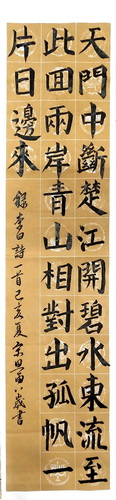 天門中斷楚江開碧水東流至
此回兩岸青山相對出孤帆一
片日邊來
錄李白詩一首己亥夏宗思菡八歲書